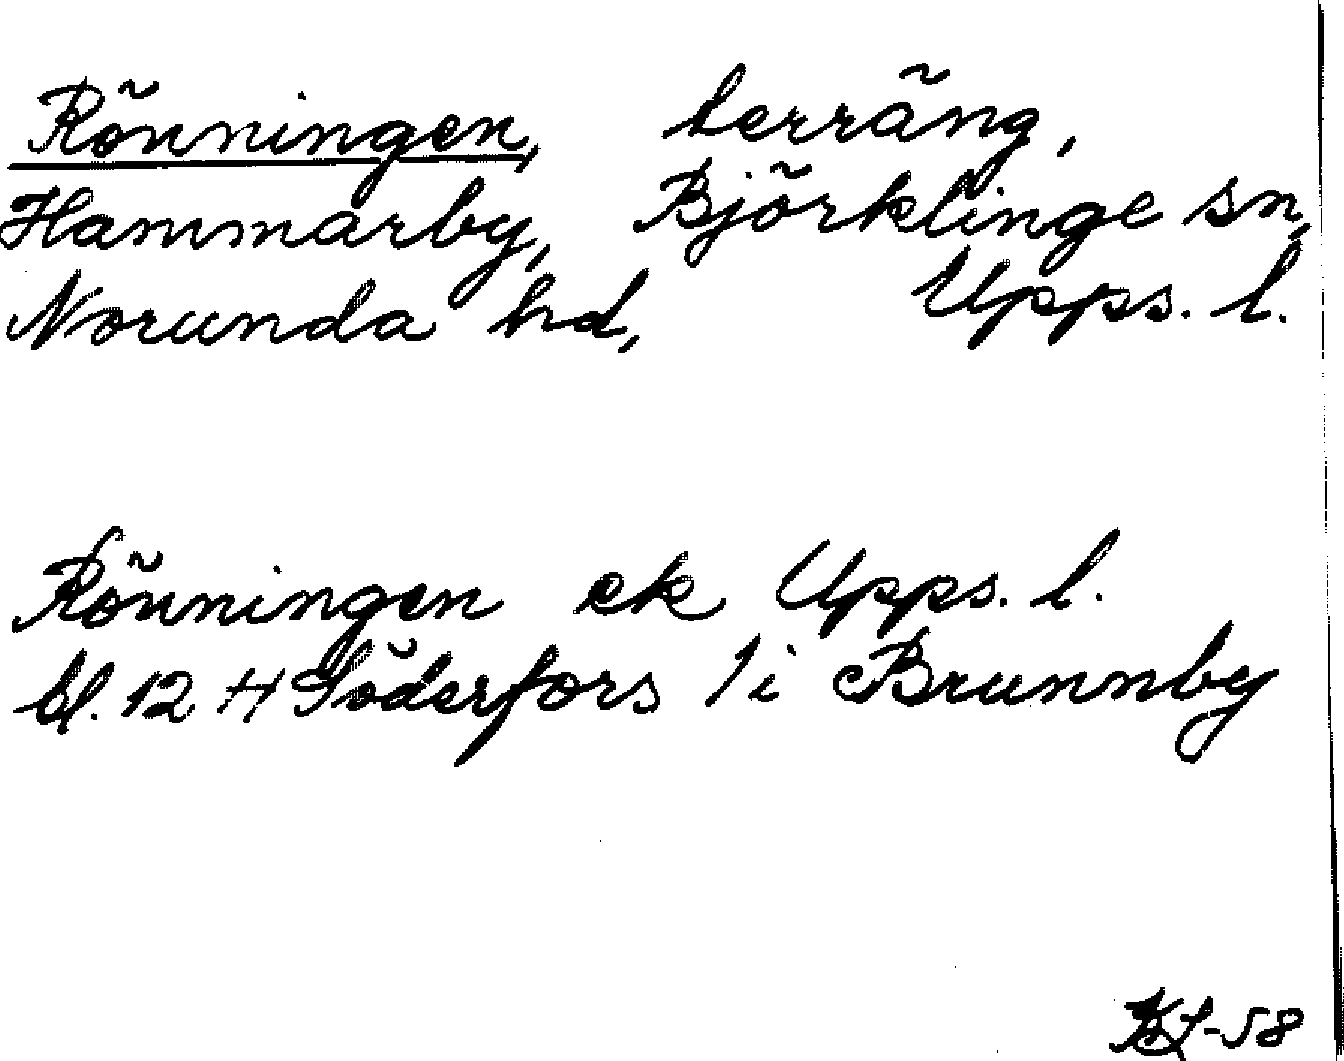 Rönningen, terräng,
Hammarby, Björklinge sn,
Norunda hd, Upps. l.
Rönningen ek Upps. l.
bl. 12 H Söderfors 1i Brunnby
-58